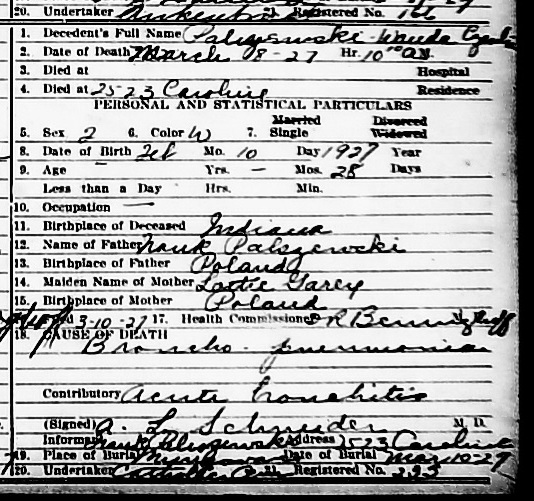 20. Undertaker 21. Registered No. 166
1. Decedent's Full Name Paliszewski - Wanda
2. Date of Death March 8-27 Hr. 10 AM.
3. Died at Hospital
4. Died at 2523 Caroline Residence
PERSONAL AND STATISTICAL PARTICULARS
5. Sex 2 6. Color W 7. Married Single Divorced Widowed
8. Date of Birth Feb Mo. 10 Day 1927 Year
9. Age — Yrs. — Mos. 28 Days
Less than a Day Hrs. Min.
10. Occupation —
11. Birthplace of Deceased Indiana
12. Name of Father Frank Palszewski
13. Birthplace of Father Poland
14. Maiden Name of Mother Lottie Garcy
15. Birthplace of Mother Poland
3-10-27 17. Health Commissioner
18. CAUSE OF DEATH
Broncho-pneumonia
Contributory Acute Bronchitis
(Signed) A. L. Schneider M. D.
Informant Frank Address 2523 Caroline
19. Place of Burial Date of Burial Mar 10-27
20. Undertaker 21. Registered No. 293